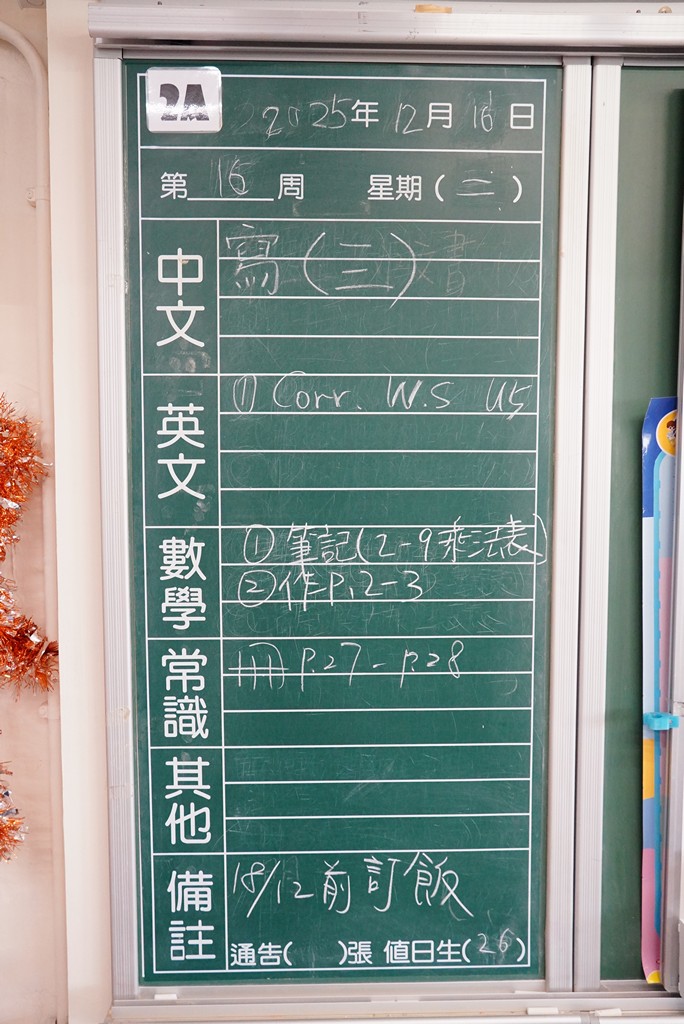 2A
2025年12月16日
第16周 星期(二)
中文
寫(三)
英文
① Corr. W.S U5
數學
① 筆記(2-9乘法表)
② 作P.2-3
常識
冊 P.27 - P.28
其他
備註
18/12前訂飯
通告( )張 值日生(26)